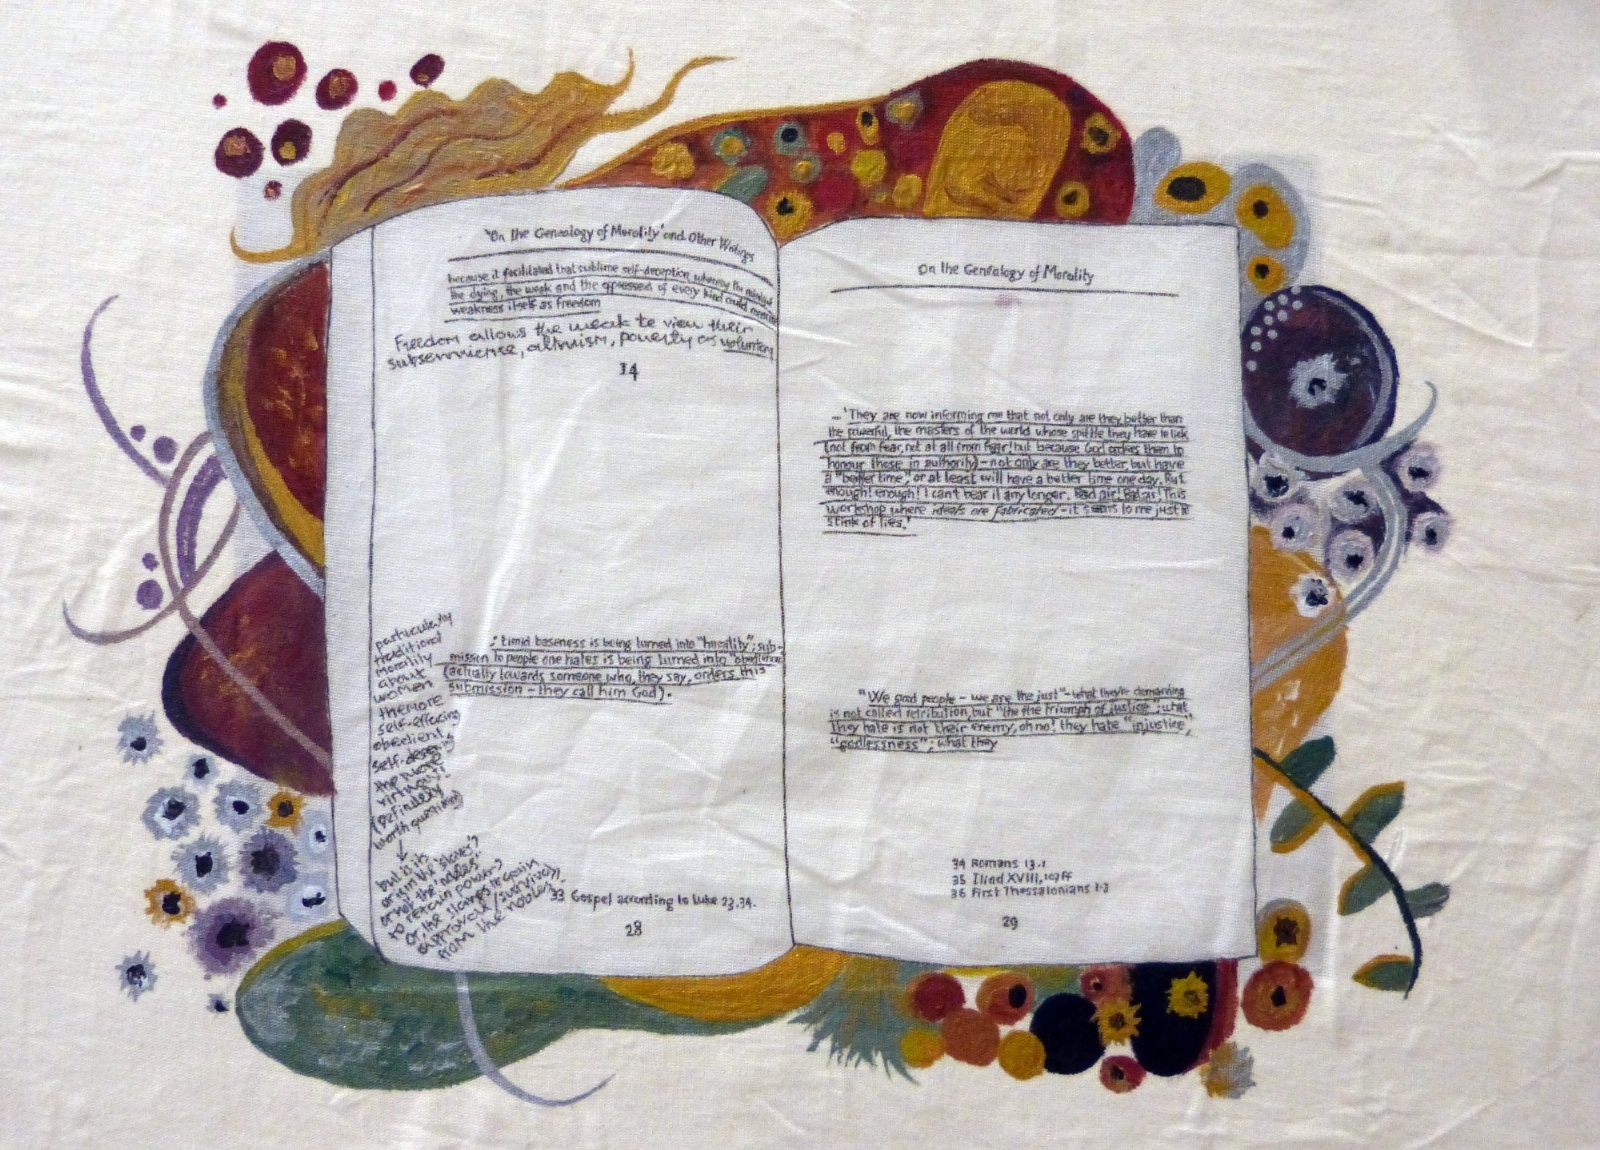 'On the Genealogy of Morality' and Other Writings
because it facilitated that sublime self-deception whereby the majority of
the dying, the weak and the oppressed of every kind could construe
weakness itself as freedom
Freedom allows the weak to view their
subservience, altruism, poverty as voluntary
34
particularly
traditional
morality
about
women
the more
self-effacing
obedient
the more
virtuous
(Definitely
worth question)
but is its
origin in the 'slaves'?
or not the 'nobles'
to retain power?
or, the slaves to gain
approval (survival)
from the nobles.
: timid baseness is being turned into "humility"; sub-
mission to people one hates is being turned into "obedience"
(actually towards someone who, they say, orders this
submission – they call him God).
33 Gospel according to Luke 23.34.
28
On the Genealogy of Morality
... 'They are now informing me that not only are they better than
the powerful, the masters of the world whose spittle they have to lick
(not from fear, not at all from fear! but because God orders them to
honour those in authority) – not only are they better, but have
a "better time", or at least will have a better time one day. But
enough! enough! I can't bear it any longer. Bad air! Bad air! This
workshop where ideals are fabricated – it seems to me just to
stink of lies.'
"We good people – we are the just" – what they're demanding
is not called retribution, but "the the triumph of justice"; what
they hate is not their enemy, oh no! they hate "injustice",
"godlessness"; what they
34 Romans 13.1
35 Iliad XVIII, 107 ff
36 First Thessalonians 1.3
29